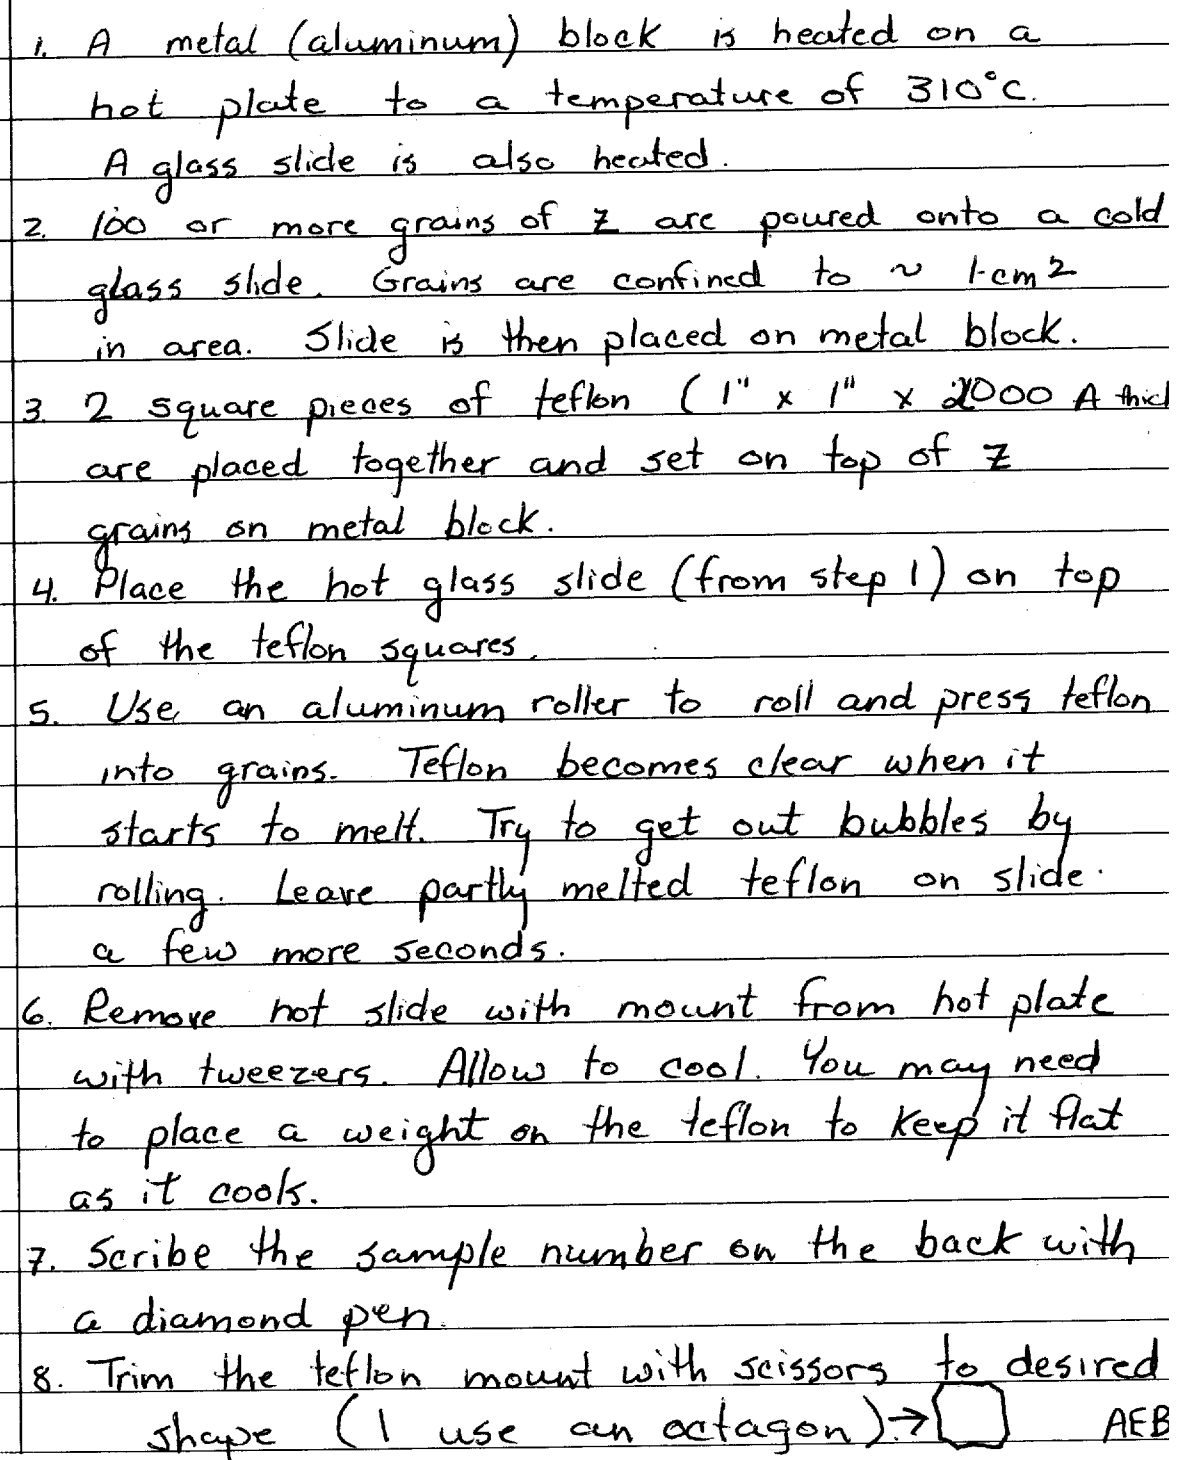 1. A metal (aluminum) block is heated on a
hot plate to a temperature of 310°C.
A glass slide is also heated.
2. 100 or more grains of Z are poured onto a cold
glass slide. Grains are confined to ~ 1-cm2
in area. Slide is then placed on metal block.
3. 2 square pieces of teflon (1" x 1" x 2000 A thick
are placed together and set on top of Z
grains on metal block.
4. Place the hot glass slide (from step 1) on top
of the teflon squares.
5. Use an aluminum roller to roll and press teflon
into grains. Teflon becomes clear when it
starts to melt. Try to get out bubbles by
rolling. Leave partly melted teflon on slide.
a few more seconds.
6. Remove hot slide with mount from hot plate
with tweezers. Allow to cool. You may need
to place a weight on the teflon to keep it flat
as it cools.
7. Scribe the sample number on the back with
a diamond pen.
8. Trim the teflon mount with scissors to desired
shape (I use an octagon).→ AEB